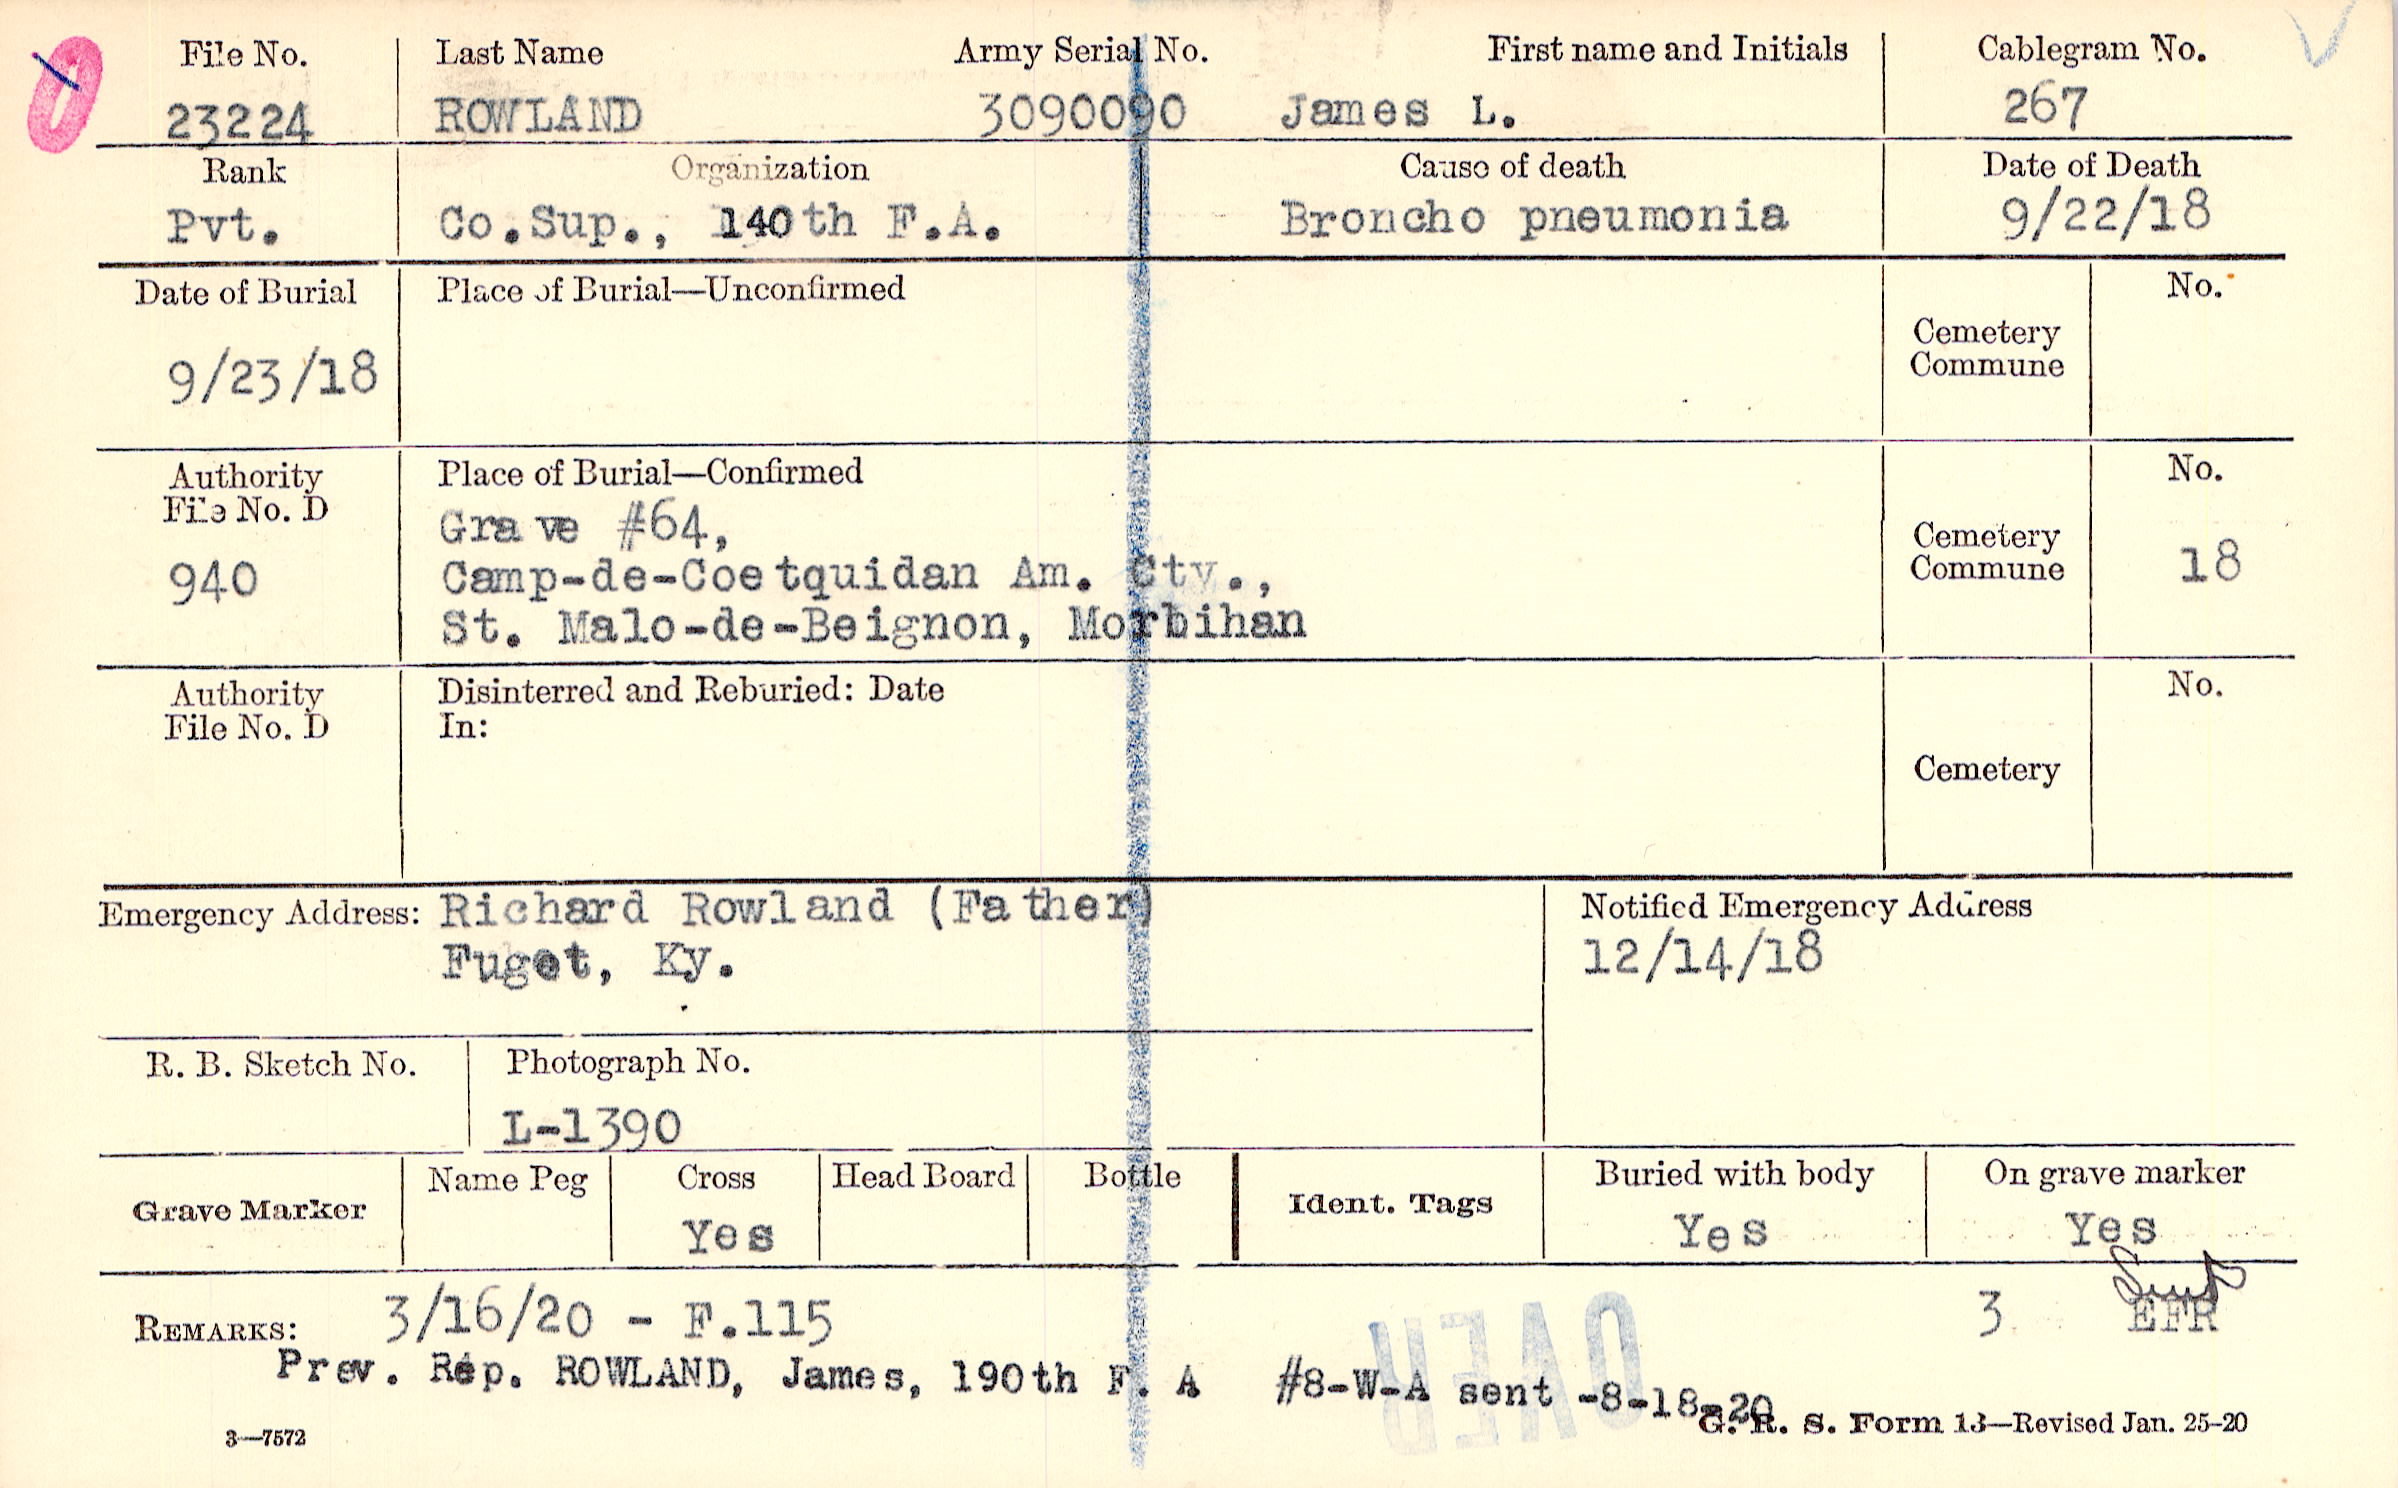 File No. Last Name Army Serial No. First name and Initials Cablegram No.
23224 ROWLAND 3090090 James L. 267
Rank Organization Cause of death Date of Death
Pvt. Co.Sup., 140th F.A. Broncho pneumonia 9/22/18
Date of Burial Place of Burial—Unconfirmed No.
Cemetery
Commune
9/23/18
Authority Place of Burial—Confirmed No.
File No. D
Grave #64,
Cemetery
Commune
940 Camp-de-Coetquidan Am. Cty., 18
St. Malo-de-Beignon, Morbihan
Authority Disinterred and Reburied: Date No.
File No. D In:
Cemetery
Emergency Address: Richard Rowland (Father) Notified Emergency Address
Fuget, Ky. 12/14/18
R. B. Sketch No. Photograph No.
L-1390
Grave Marker Name Peg Cross Head Board Bottle Ident. Tags Buried with body On grave marker
Yes Yes Yes
Sent
REMARKS: 3/16/20 - F.115 3 EFR
OVER
Prev. Rep. ROWLAND, James, 190th F. A #8-W-A sent -8-18-20
3—7572 G. R. S. Form 13—Revised Jan. 25-20